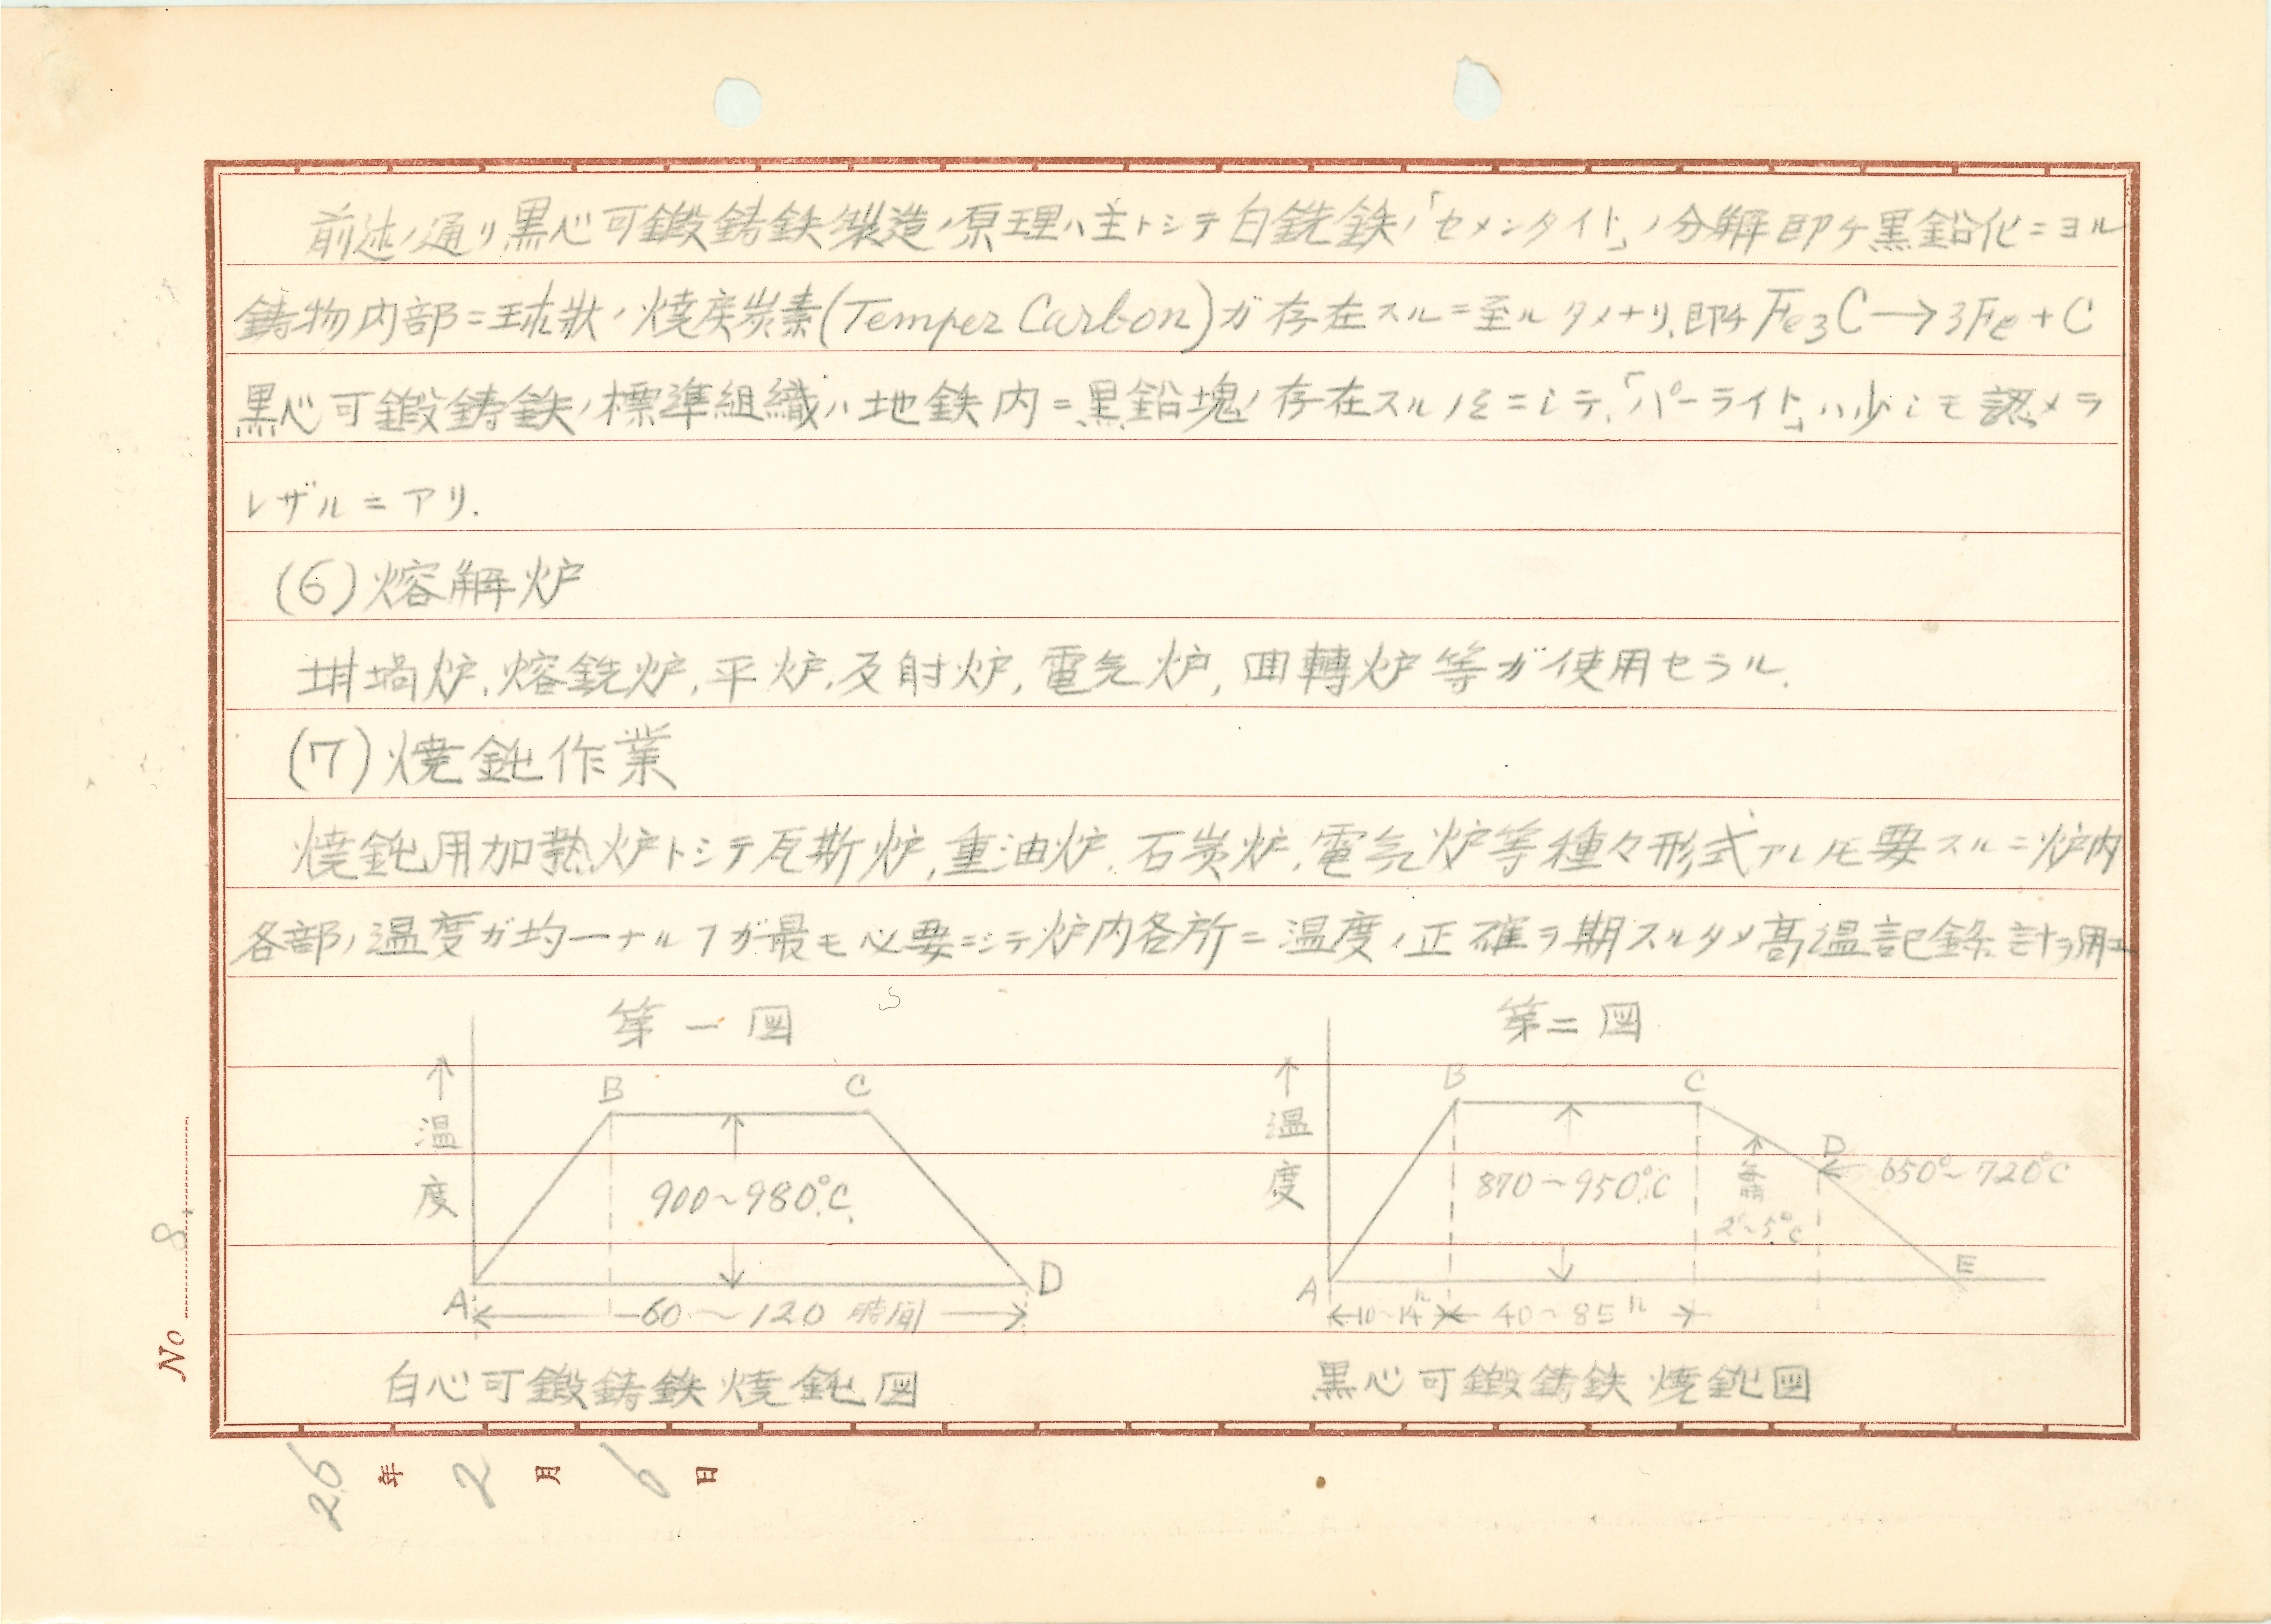 前述ノ通リ黒心可鍛鋳鉄製造ノ原理ハ主トシテ白銑鉄ノ「セメンタイト」ノ分解即チ黒鉛化ニヨル
鋳物内部ニ球状ノ焼戻炭素(Temper Carbon)ガ存在スルニ至ルタメナリ.即チFe3C→3Fe+C
黒心可鍛鋳鉄ノ標準組織ハ地鉄内ニ黒鉛塊ノ存在スルノミニシテ.「パーライト」ハ少シモ認メラ
レザルニアリ.
(6)熔解炉
坩堝炉,熔銑炉,平炉,反射炉,電気炉,回轉炉等ガ使用セラル.
(7)焼鈍作業
焼鈍用加熱炉トシテ瓦斯炉,重油炉.石炭炉.電気炉等種々形式アレ𪜈要スルニ炉内
各部ノ温度ガ均一ナルヿガ最モ必要ニシテ炉内各所ニ温度ノ正確ヲ期スルタメ高温記録計ヲ用エ
第一図
↑温度
B
C
900~980°C.
A
D
60~120時間
白心可鍛鋳鉄焼鈍図
第二図
↑温度
B
C
D
650°~720°C
870~950°C
毎時
2°~5°C
A
E
10~14h
40~85h
黒心可鍛鋳鉄焼鈍図
No 8.
26年2月6日